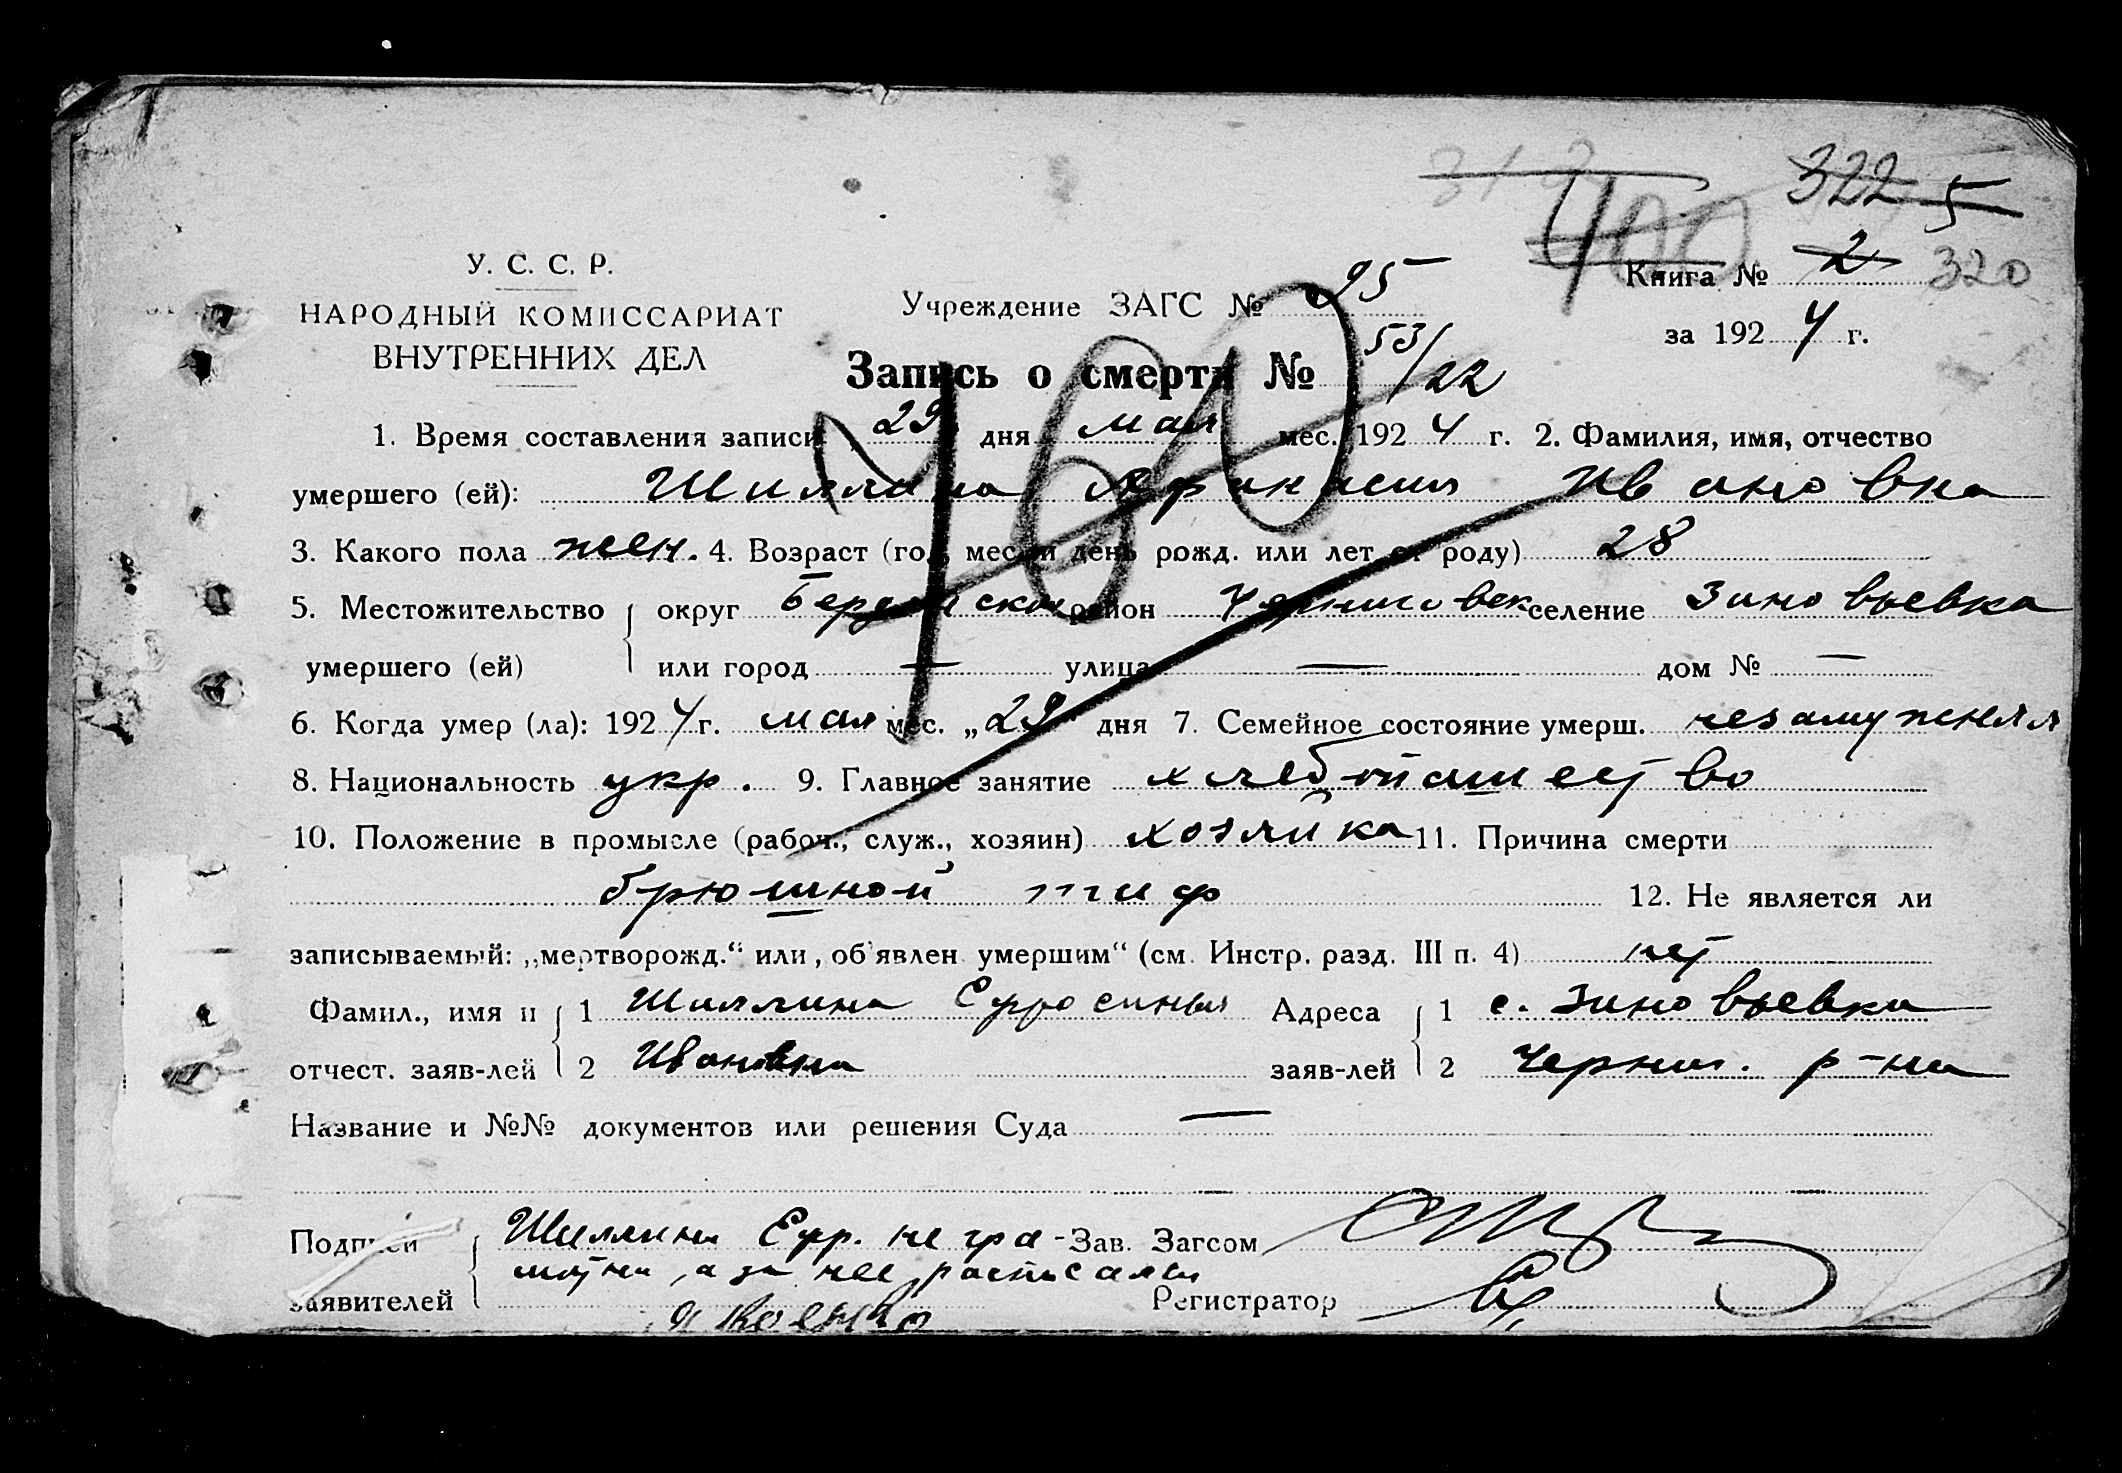 319 322 5
400
У. С. С. Р.
НАРОДНЫЙ КОМИССАРИАТ
ВНУТРЕННИХ ДЕЛ
Учреждение ЗАГС № 95
Книга № 2 320
за 1924 г.
Запись о смерти № 53/22
160
1. Время составления записи 29 дня мая мес. 1924 г. 2. Фамилия, имя, отчество
умершего (ей): Шиллина Афанасия Ивановна
3. Какого пола жен. 4. Возраст (год, мес. и день рожд. или лет от роду) 28
5. Местожительство округ Бердянский район Черниговск селение Зиновьевка
умершего (ей) или город — улица — дом № —
6. Когда умер (ла): 1924 г. мая мес. „29 дня 7. Семейное состояние умерш. незамужняя
8. Национальность укр. 9. Главное занятие хлебопашество
10. Положение в промысле (рабоч., служ., хозяин) хозяйка 11. Причина смерти
брюшной тиф 12. Не является ли
записываемый: „мертворожд.“ или „об'явлен умершим“ (см. Инстр. разд. III п. 4) нет
Фамил., имя и 1 Шиллина Ефросинья Адреса 1 с. Зиновьевка
отчест. заяв-лей 2 Ивановна заяв-лей 2 Черниг. р-на
Название и №№ документов или решения Суда —
Подписи Шиллина Ефр. негра- Зав. Загсом
мотна, а за нее расписался
заявителей Регистратор